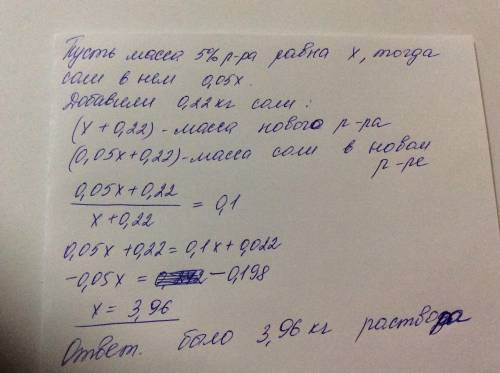 Пусть масса 5% р-ра равна x, тогда
соли в нем 0,05x.
Добавили 0,22 кг соли:
(x + 0,22) - масса нового р-ра
(0,05x+0,22) - масса соли в новом
р-ре
0,05x + 0,22
x + 0,22
= 0,1
0,05x + 0,22 = 0,1x + 0,022
-0,05x = -0,198
x = 3,96
Ответ. было 3,96 кг раствора